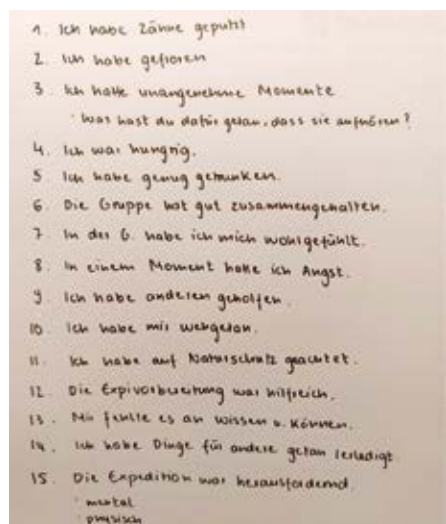 1. Ich habe Zähne geputzt
2. Ich habe gefroren
3. Ich hatte unangenehme Momente
· Was hast du dafür getan, dass sie aufhören?
4. Ich war hungrig.
5. Ich habe genug getrunken.
6. Die Gruppe hat gut zusammengehalten.
7. In der G. habe ich mich wohlgefühlt.
8. In einem Moment hatte ich Angst.
9. Ich habe anderen geholfen.
10. Ich habe mir wehgetan.
11. Ich habe auf Naturschutz geachtet.
12. Die Expivorbereitung war hilfreich.
13. Mir fehlte es an Wissen u. Können.
14. Ich habe Dinge für andere getan / erledigt
15. Die Expedition war herausfordernd.
· mental
· physisch